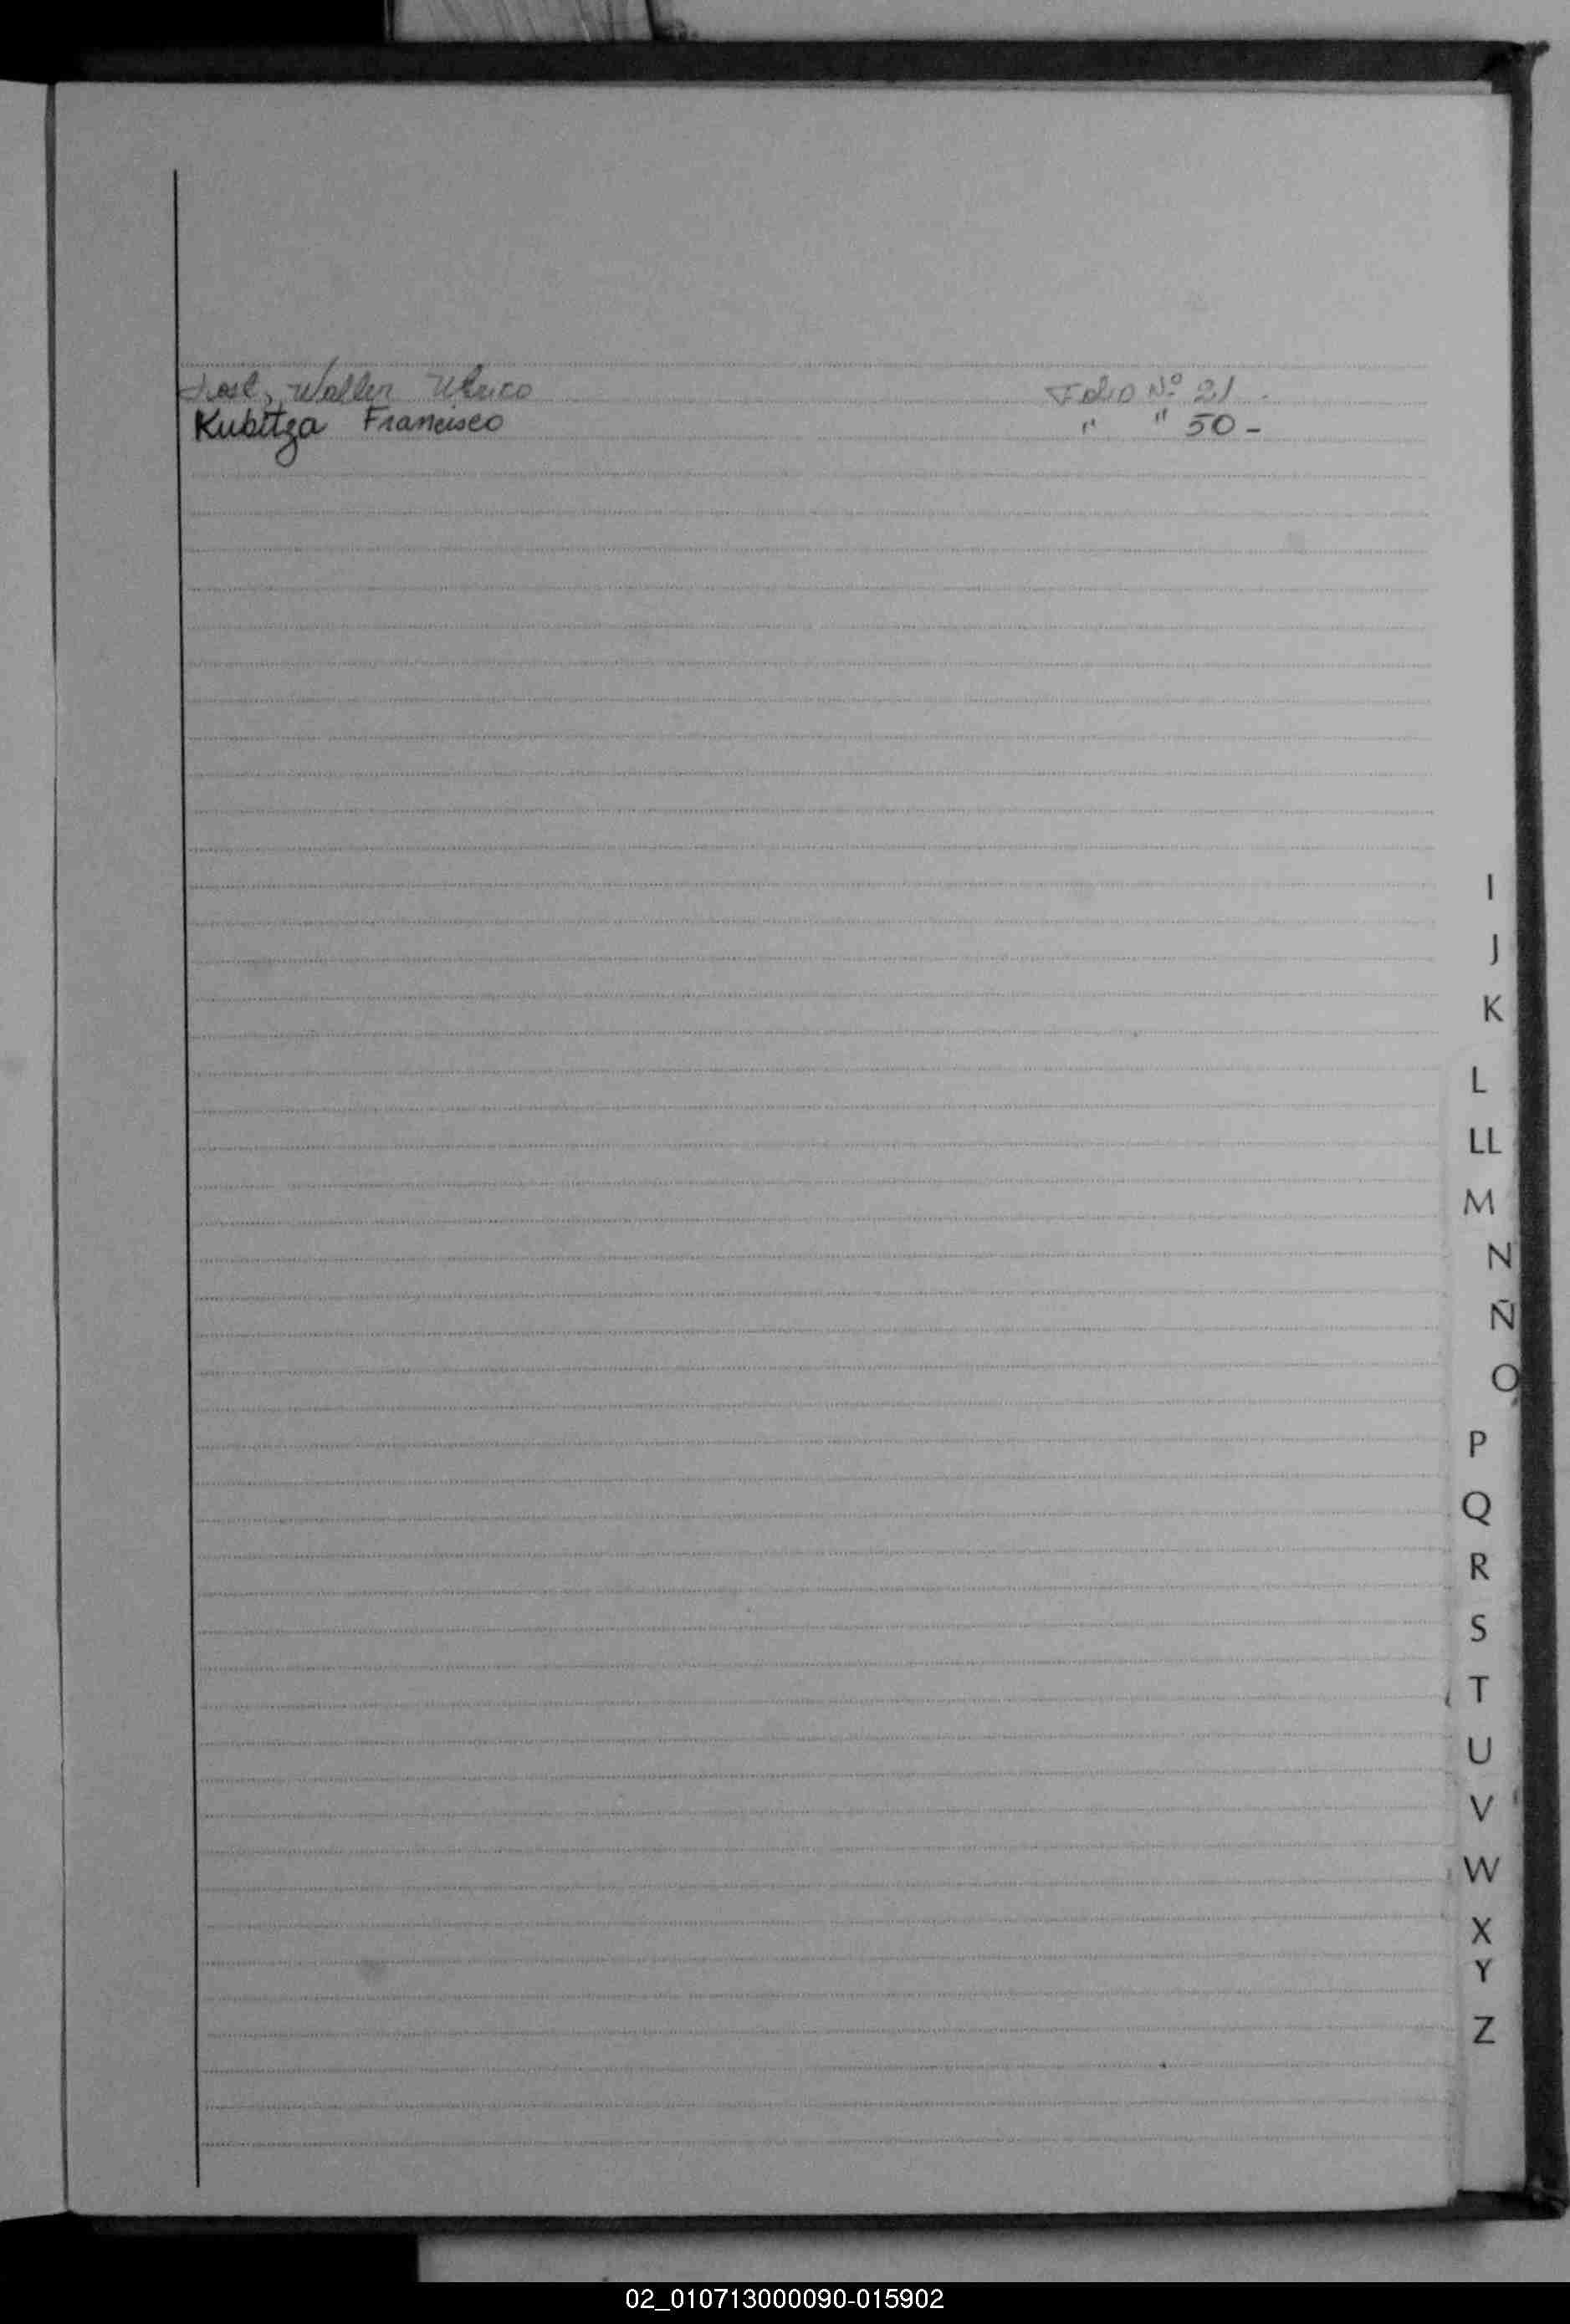 Walter Ulrico Folio Nº 21 -
Kubitza Francisco " " 50 -
I
J
K
L
LL
M
N
Ñ
O
P
Q
R
S
T
U
V
W
X
Y
Z
02_010713000090-015902